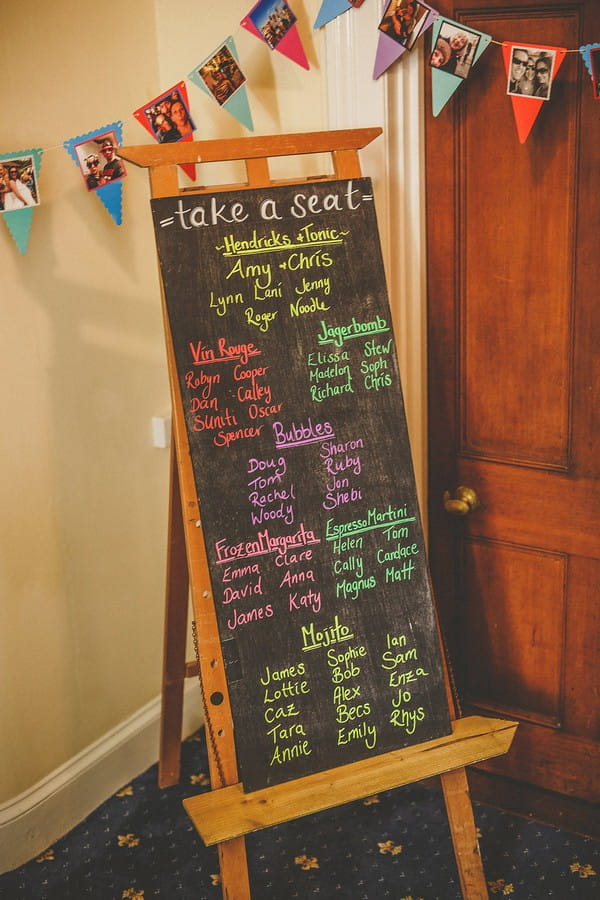 =take a seat=
~Hendricks + Tonic~
Amy + Chris
Lynn Lani Jenny
Roger Noodle
Vin Rouge
Robyn Cooper
Dan Calley
SUNiti Oscar
Spencer
Jagerbomb
Elissa Stew
Madelon Soph
Richard Chris
Bubbles
Doug Sharon
Tom Ruby
Rachel Jon
Woody Shebi
Frozen Margarita
Emma Clare
David Anna
James Katy
Espresso Martini
Helen Tom
Cally Candace
Magnus Matt
Mojito
James Sophie Ian
Lottie Bob Sam
Caz Alex Enza
Tara Becs Jo
Annie Emily Rhys